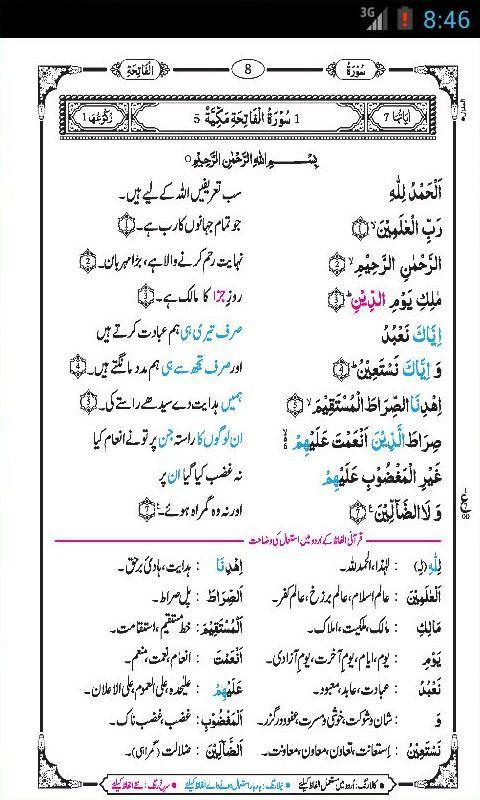 3G 8:46
سُوْرَةُ 8 اَلْفَاتِحَةِ
اٰيَاتُهَا 7 1 سُوْرَةُ الْفَاتِحَةِ مَكِّيَّةٌ 5 رُكُوْعُهَا 1
بِسْمِ اللهِ الرَّحْمٰنِ الرَّحِيْمِ
اَلْحَمْدُ لِلّٰهِ سب تعریفیں اللہ کے لیے ہیں۔
رَبِّ الْعٰلَمِيْنَ ۙ 1 جو تمام جہانوں کا رب ہے۔ 1
الرَّحْمٰنِ الرَّحِيْمِ ۙ 2 نہایت رحم کرنے والا ہے، بڑا مہربان۔ 2
مٰلِكِ يَوْمِ الدِّيْنِ ؕ 3 روزِ جزا کا مالک ہے۔ 3
اِيَّاكَ نَعْبُدُ صرف تیری ہی ہم عبادت کرتے ہیں
وَ اِيَّاكَ نَسْتَعِيْنُ ؕ 4 اور صرف تجھ سے ہی ہم مدد مانگتے ہیں۔ 4
اِهْدِنَا الصِّرَاطَ الْمُسْتَقِيْمَ ۙ 5 ہمیں ہدایت دے سیدھے راستے کی۔ 5
صِرَاطَ الَّذِيْنَ اَنْعَمْتَ عَلَيْهِمْ ان لوگوں کا راستہ جن پر تو نے انعام کیا
غَيْرِ الْمَغْضُوْبِ عَلَيْهِمْ نہ غضب کیا گیا ان پر
وَ لَا الضَّآلِّيْنَ 7 اور نہ وہ گمراہ ہوئے۔ 7
قرآنی الفاظ کے اردو میں استعمال کی وضاحت
لِلّٰهِ (لِ) : لہٰذا، الحمدللہ۔ اِهْدِنَا : ہدایت، ہادیٔ برحق۔
الْعٰلَمِيْنَ : عالم اسلام، عالم برزخ، عالم کفر۔ الصِّرَاطَ : پل صراط۔
مَالِكِ : مالک، ملکیت، املاک۔ الْمُسْتَقِيْمَ : خط مستقیم، استقامت۔
يَوْمِ : یوم، ایام، یوم آخرت، یوم آزادی۔ اَنْعَمْتَ : انعام، نعمت، منعم۔
نَعْبُدُ : عبادت، عابد، معبود۔ عَلَيْهِمْ : علیحدہ، علی العموم، علی الاعلان۔
وَ : شان و شوکت، خوشی و مسرت، عفو و درگزر۔ الْمَغْضُوْبِ : غضب، غضب ناک۔
نَسْتَعِيْنُ : استعانت، تعاون، معاون، معاونت۔ الضَّآلِّيْنَ : ضلالت (گمراہی)۔